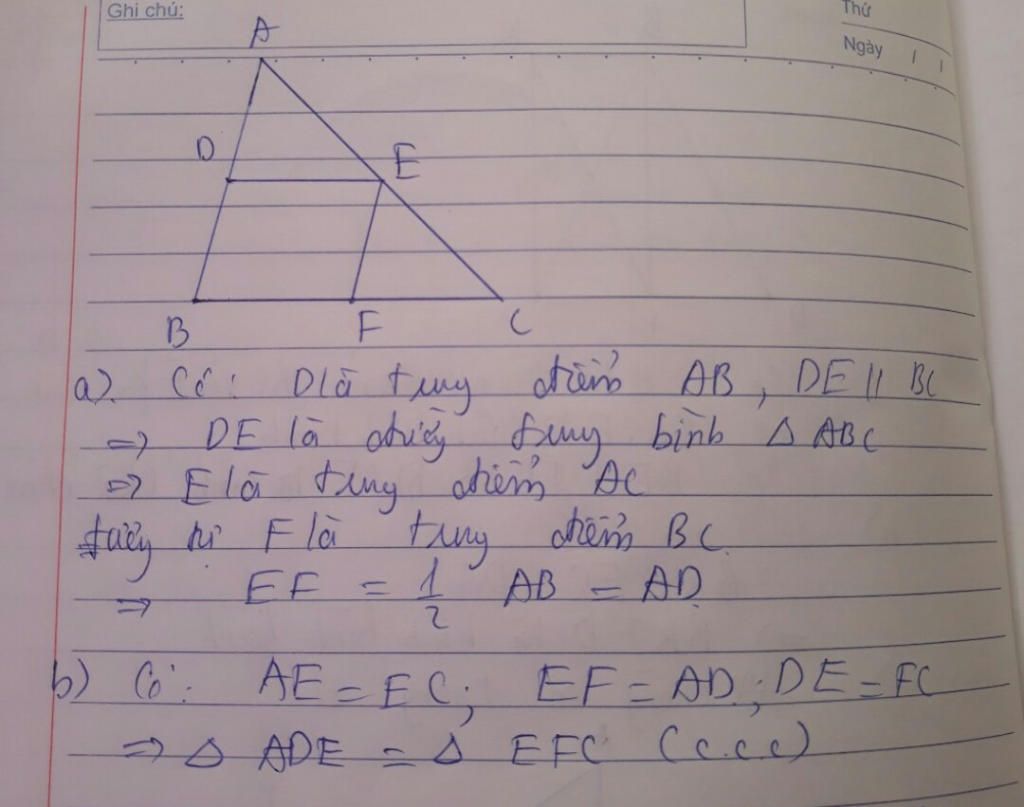 Ghi chú:
Thứ
Ngày / /
A
D
E
B
F
C
a). Có: D là trung điểm AB, DE // BC
=> DE là đường trung bình Δ ABC
=> E là trung điểm AC
tương tự F là trung điểm BC
=> EF = 1/2 AB = AD
b) Có: AE = EC; EF = AD; DE = FC
=> Δ ADE = Δ EFC (c.c.c)